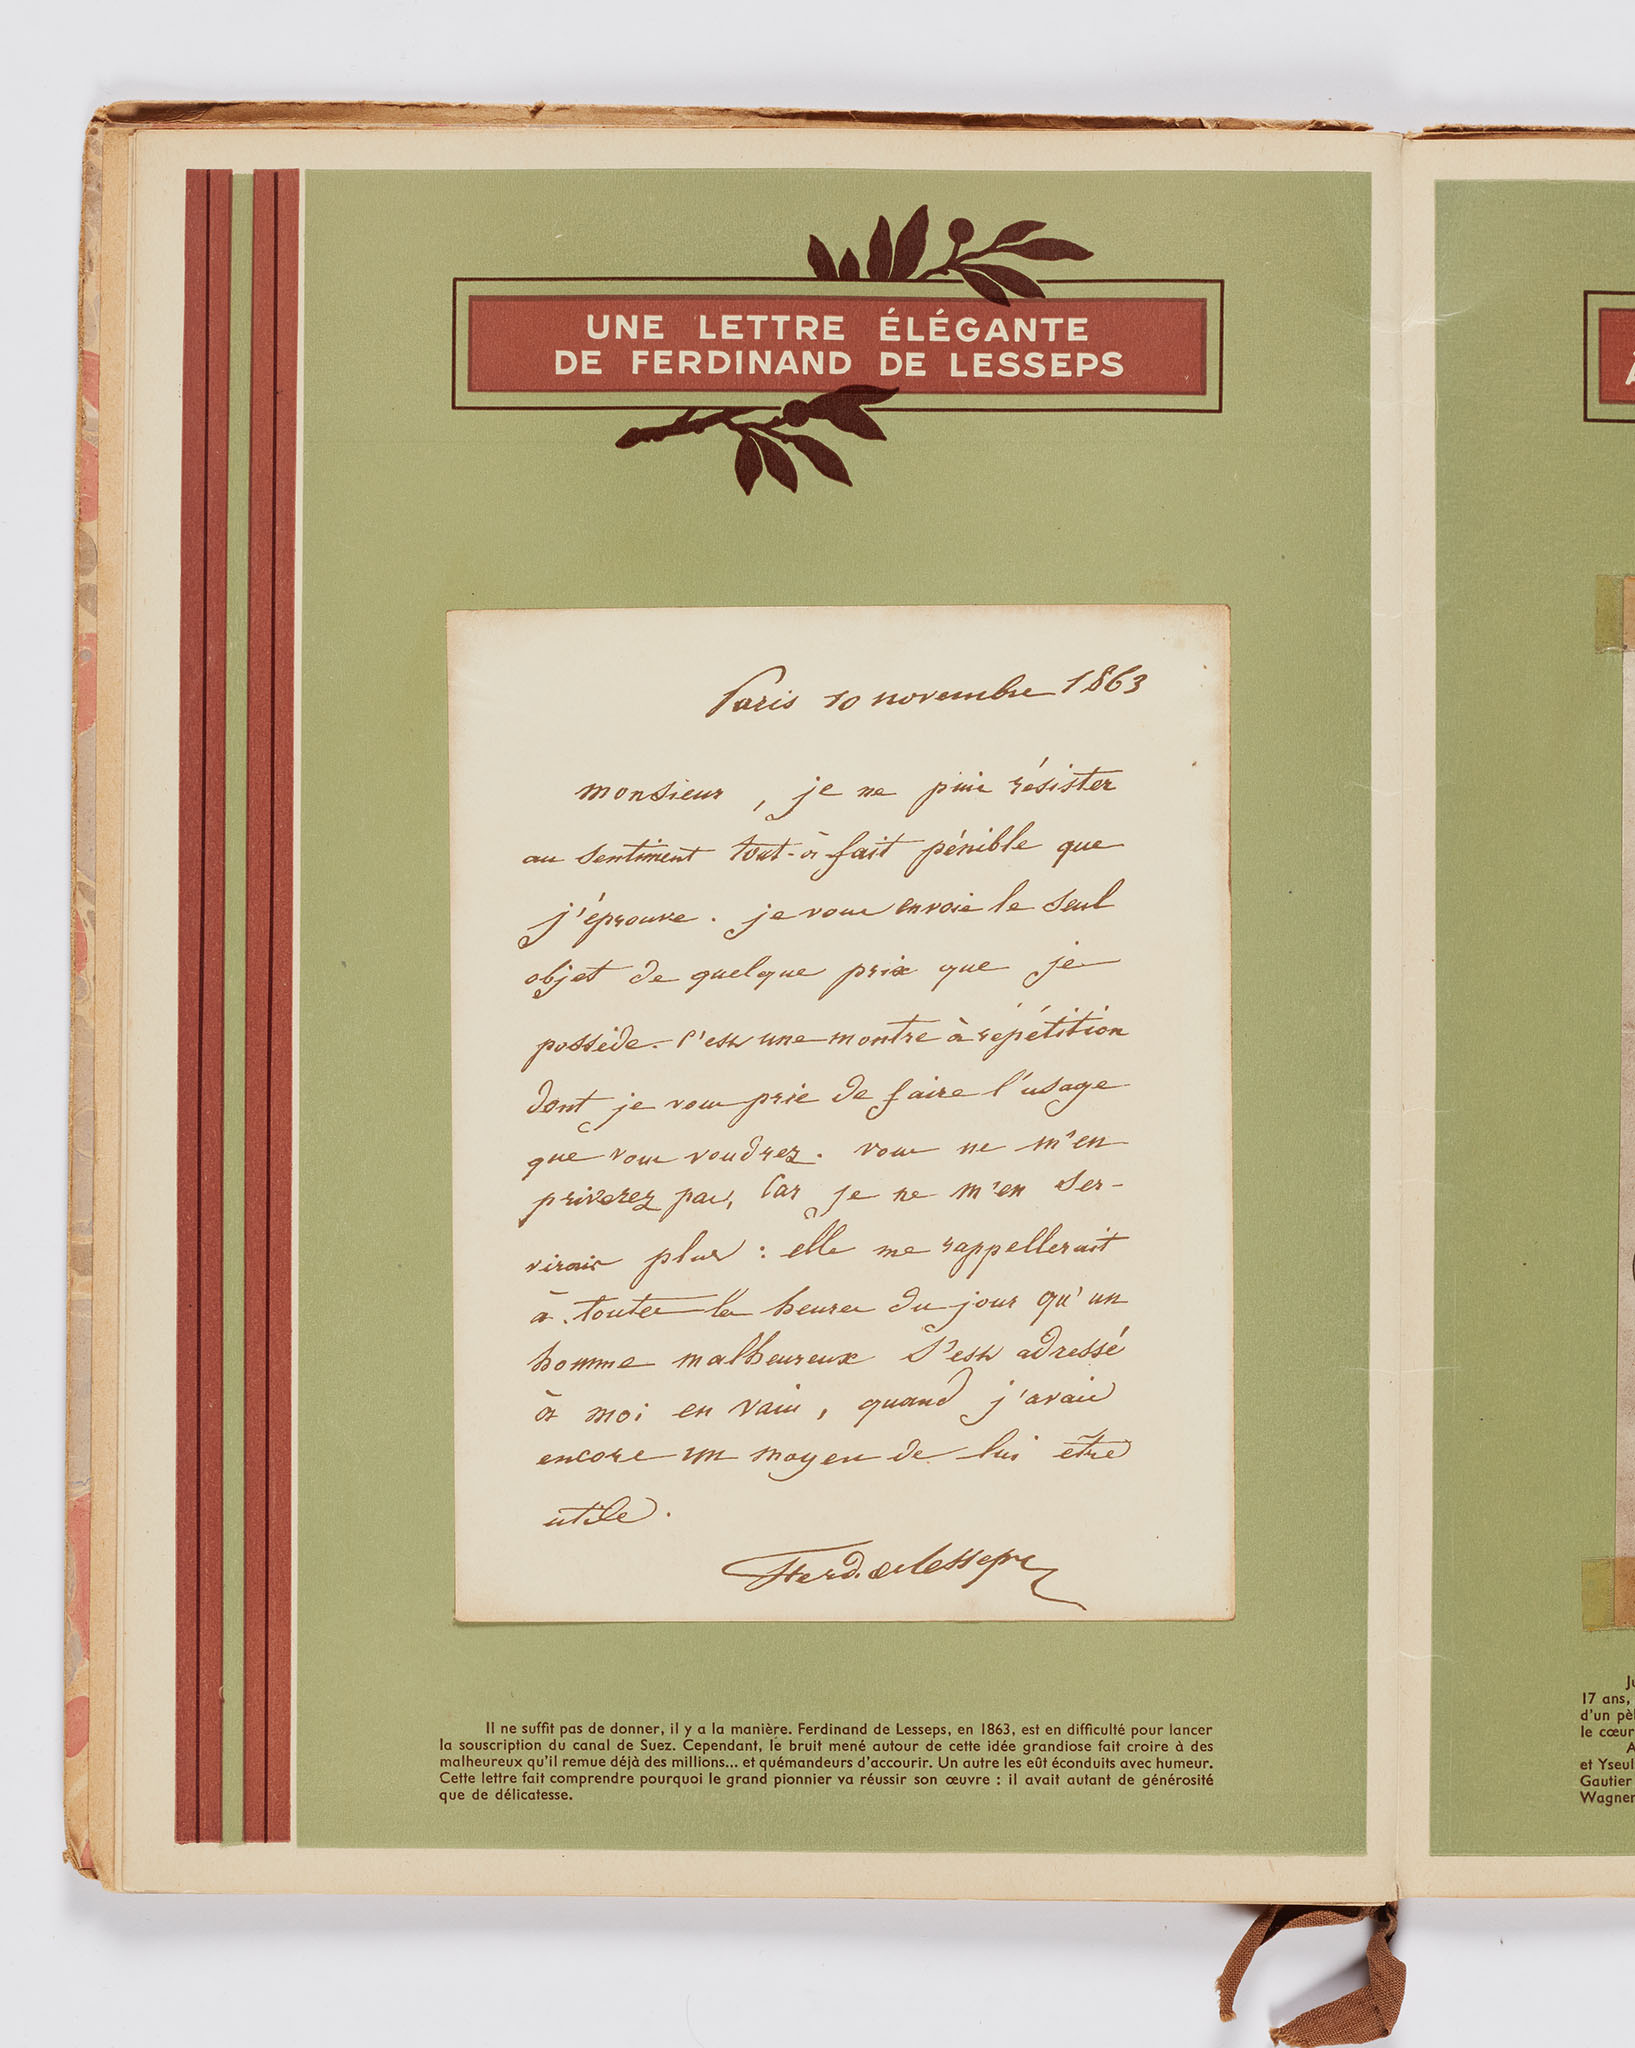 UNE LETTRE ÉLÉGANTE
DE FERDINAND DE LESSEPS
Paris 10 novembre 1863
Monsieur, je ne puis résister
au sentiment tout-à-fait pénible que
j'éprouve. je vous envoie le seul
objet de quelque prix que je
possède. C'est une montre à répétition
dont je vous prie de faire l'usage
que vous voudrez. vous ne m'en
priverez pas, Car je ne m'en ser-
virais plus : elle me rappellerait
à toutes les heures du jour qu'un
homme malheureux s'est adressé
à moi en vain, quand j'avais
encore un moyen de lui être
utile.
Ferd. de Lesseps
Il ne suffit pas de donner, il y a la manière. Ferdinand de Lesseps, en 1863, est en difficulté pour lancer
la souscription du canal de Suez. Cependant, le bruit mené autour de cette idée grandiose fait croire à des
malheureux qu'il remue déjà des millions... et quémandeurs d'accourir. Un autre les eût éconduits avec humeur.
Cette lettre fait comprendre pourquoi le grand pionnier va réussir son œuvre : il avait autant de générosité
que de délicatesse.
17 ans,
d'un
le
et
Gautier